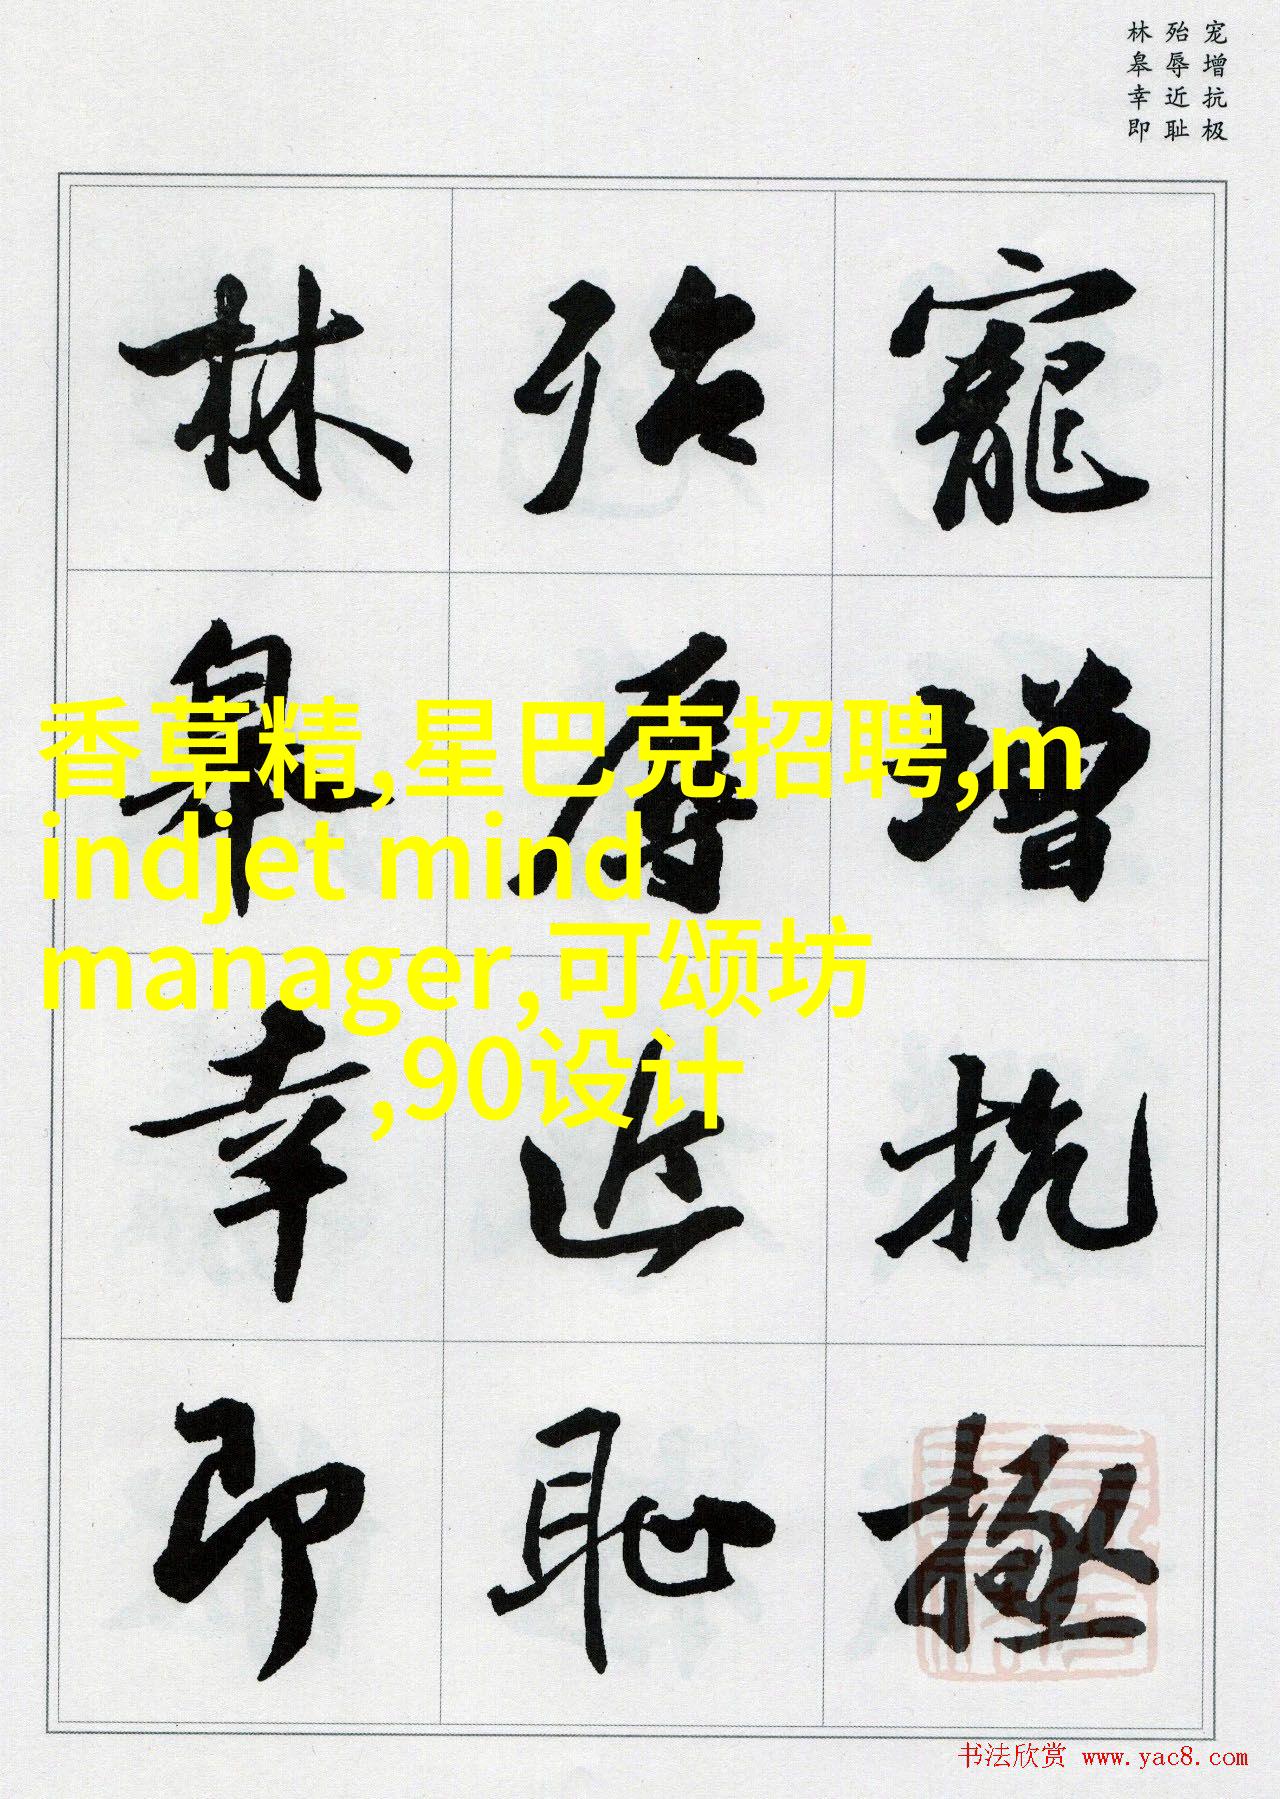 宠增抗极
殆辱近耻
林皋幸即
寵增抗極
殆辱近恥
林皋幸即
香草精,星巴克招聘,m
indjet mind
manager,可颂坊
,90设计
书法欣赏 www.yac8.com